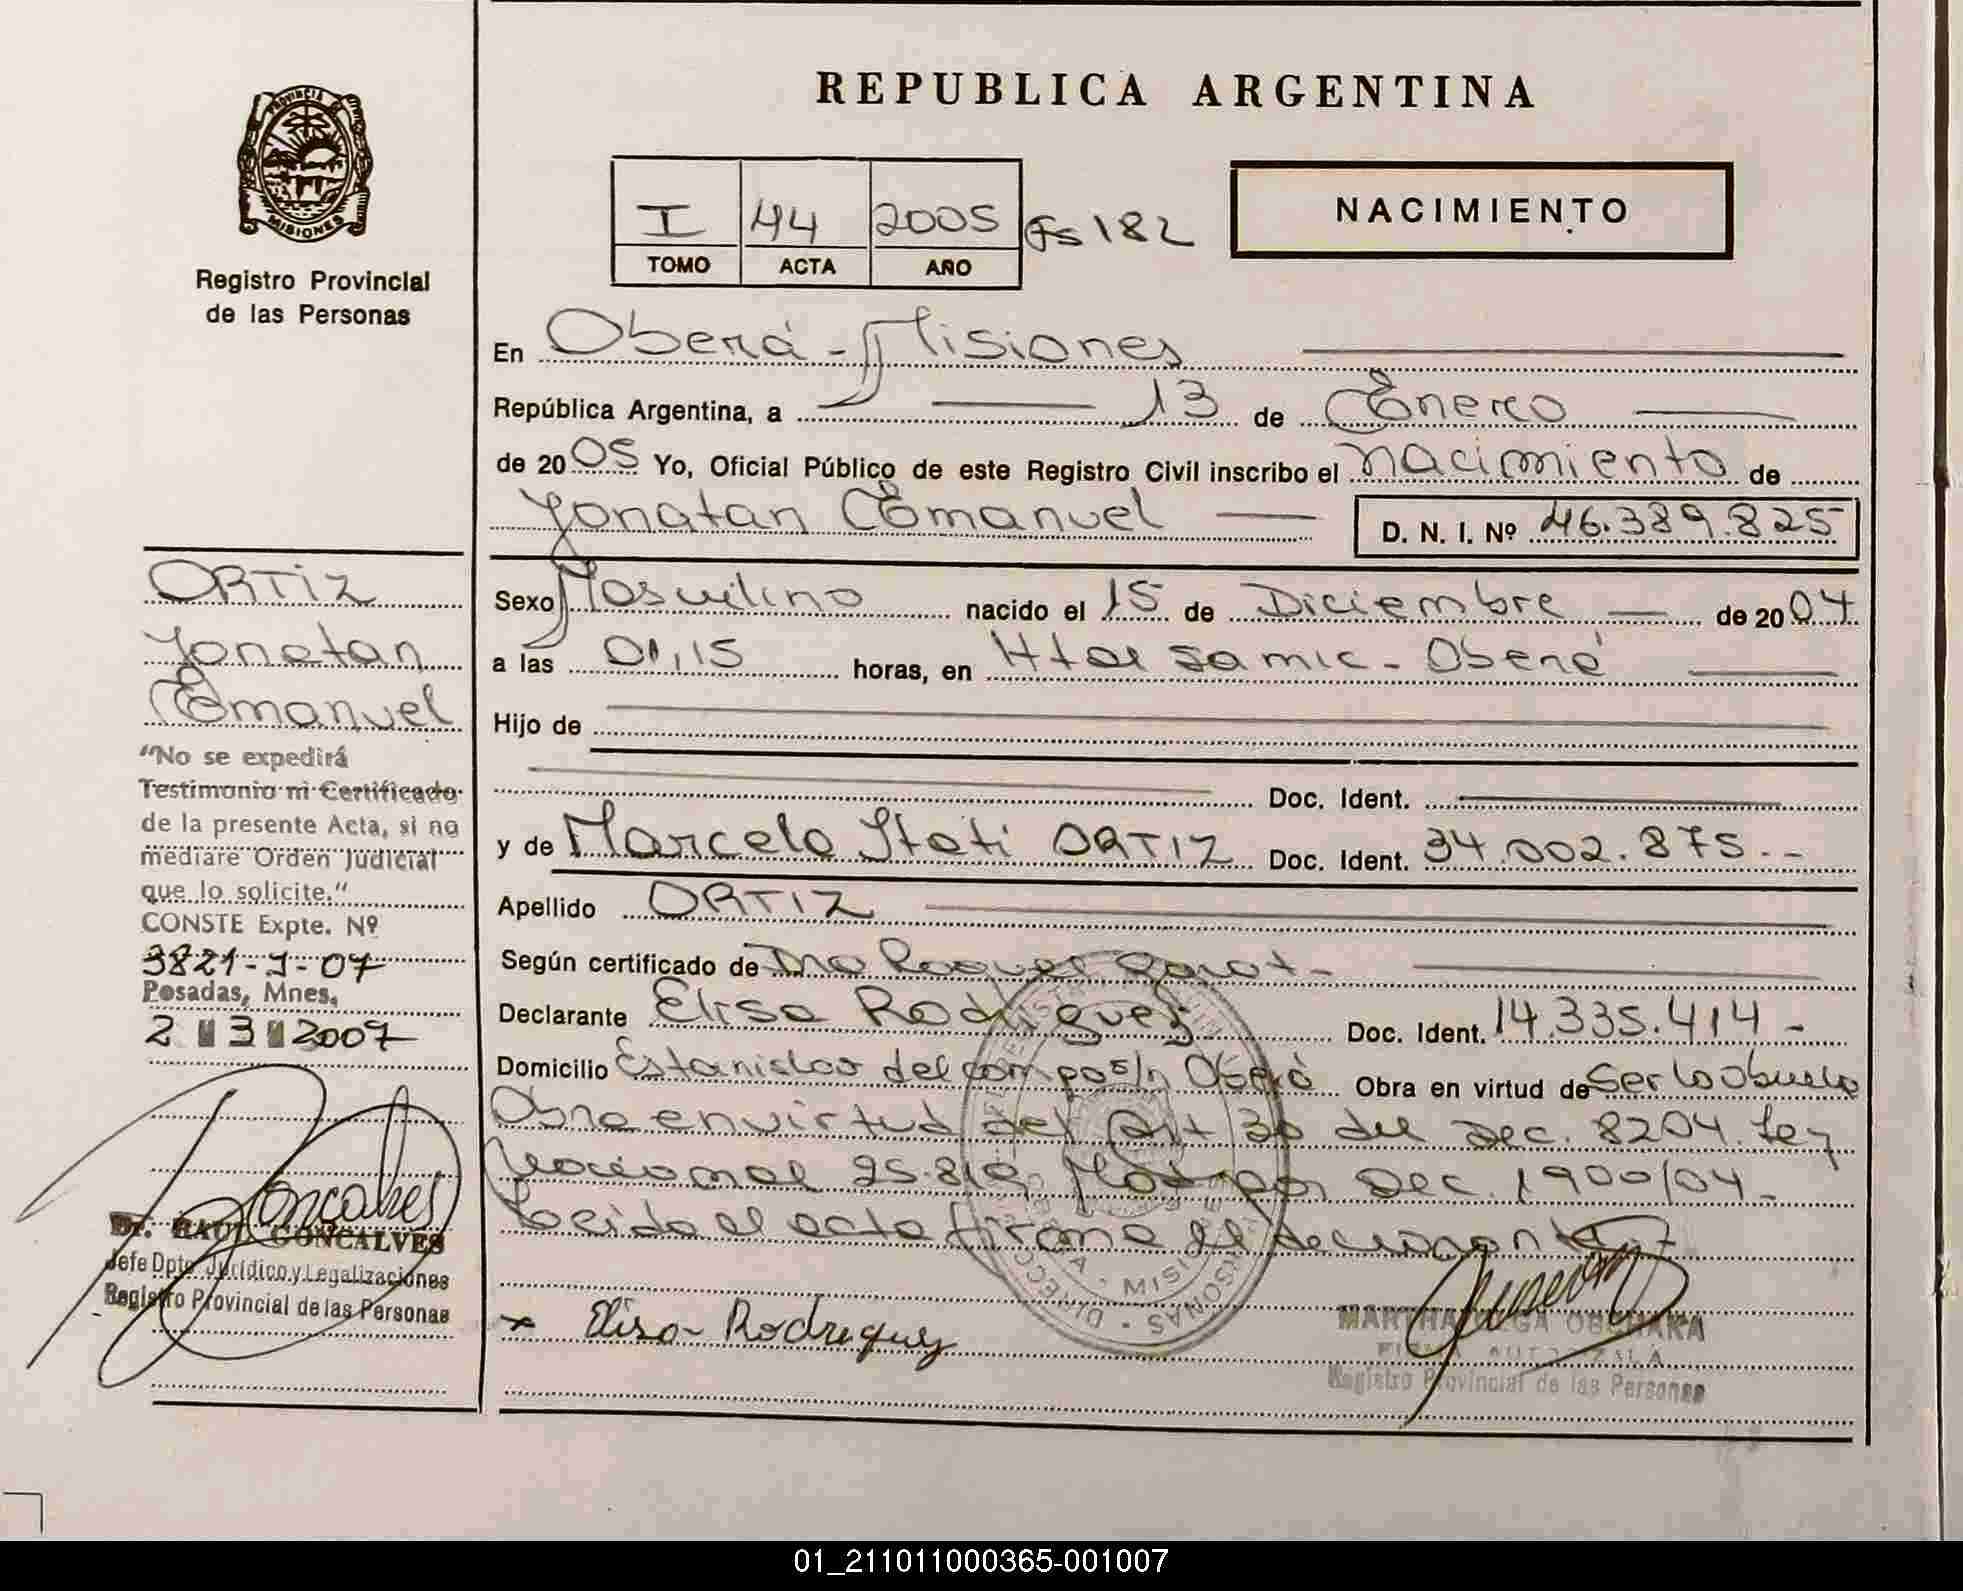 REPUBLICA ARGENTINA
PROVINCIA DE MISIONES
Registro Provincial
de las Personas
I 44 2005 Fs 182
TOMO ACTA AÑO
NACIMIENTO
En Oberá - Misiones
República Argentina, a 13 de Enero
de 2005 Yo, Oficial Público de este Registro Civil inscribo el nacimiento de
Yonatan Emanuel D. N. I. Nº 46.389.825
Sexo Masculino nacido el 15 de Diciembre de 2004
a las 01,15 horas, en Htal Samic - Oberá
Hijo de
Doc. Ident.
y de Marcela Itati ORTIZ Doc. Ident. 34.002.875.-
Apellido ORTIZ
Según certificado de Dra Raquel
Declarante Elisa Rodriguez Doc. Ident. 14.335.414 -
Domicilio Estanislao del Campo s/n Oberá Obra en virtud de Ser la abuela
Obra en virtud del Art 30 del Dec. 8204. Ley
Nacional 25.819, Mod por Dec. 1900/04 -
Leida el acta firma el declarante
x Elisa Rodriguez
MARTHA OLGA
FIRMA AUTORIZADA
Registro Provincial de las Personas
ORTIZ
Yonatan
Emanuel
"No se expedirá
Testimonio ni Certificado
de la presente Acta, si no
mediare Orden Judicial
que lo solicite."
CONSTE Expte. Nº
3821-J-07
Posadas, Mnes,
2 3 2007
Goncalves
Dr. RAUL GONCALVES
Jefe Dpto Jurídico y Legalizaciones
Registro Provincial de las Personas
01_211011000365-001007